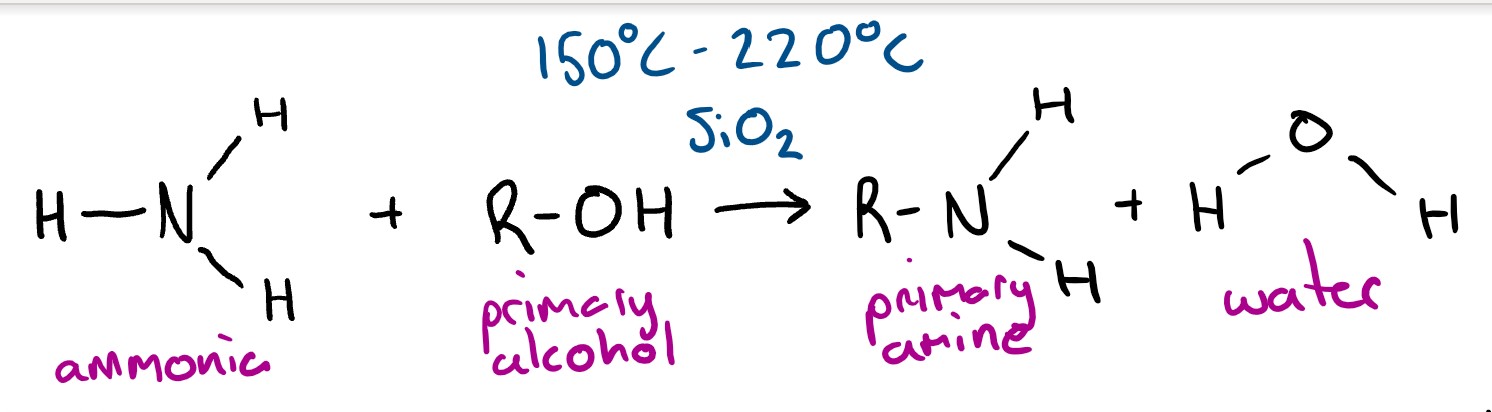 150°C - 220°C
SiO₂
H
H
H—N + R-OH → R-N + H O H
H
H
ammonia primary alcohol primary amine water